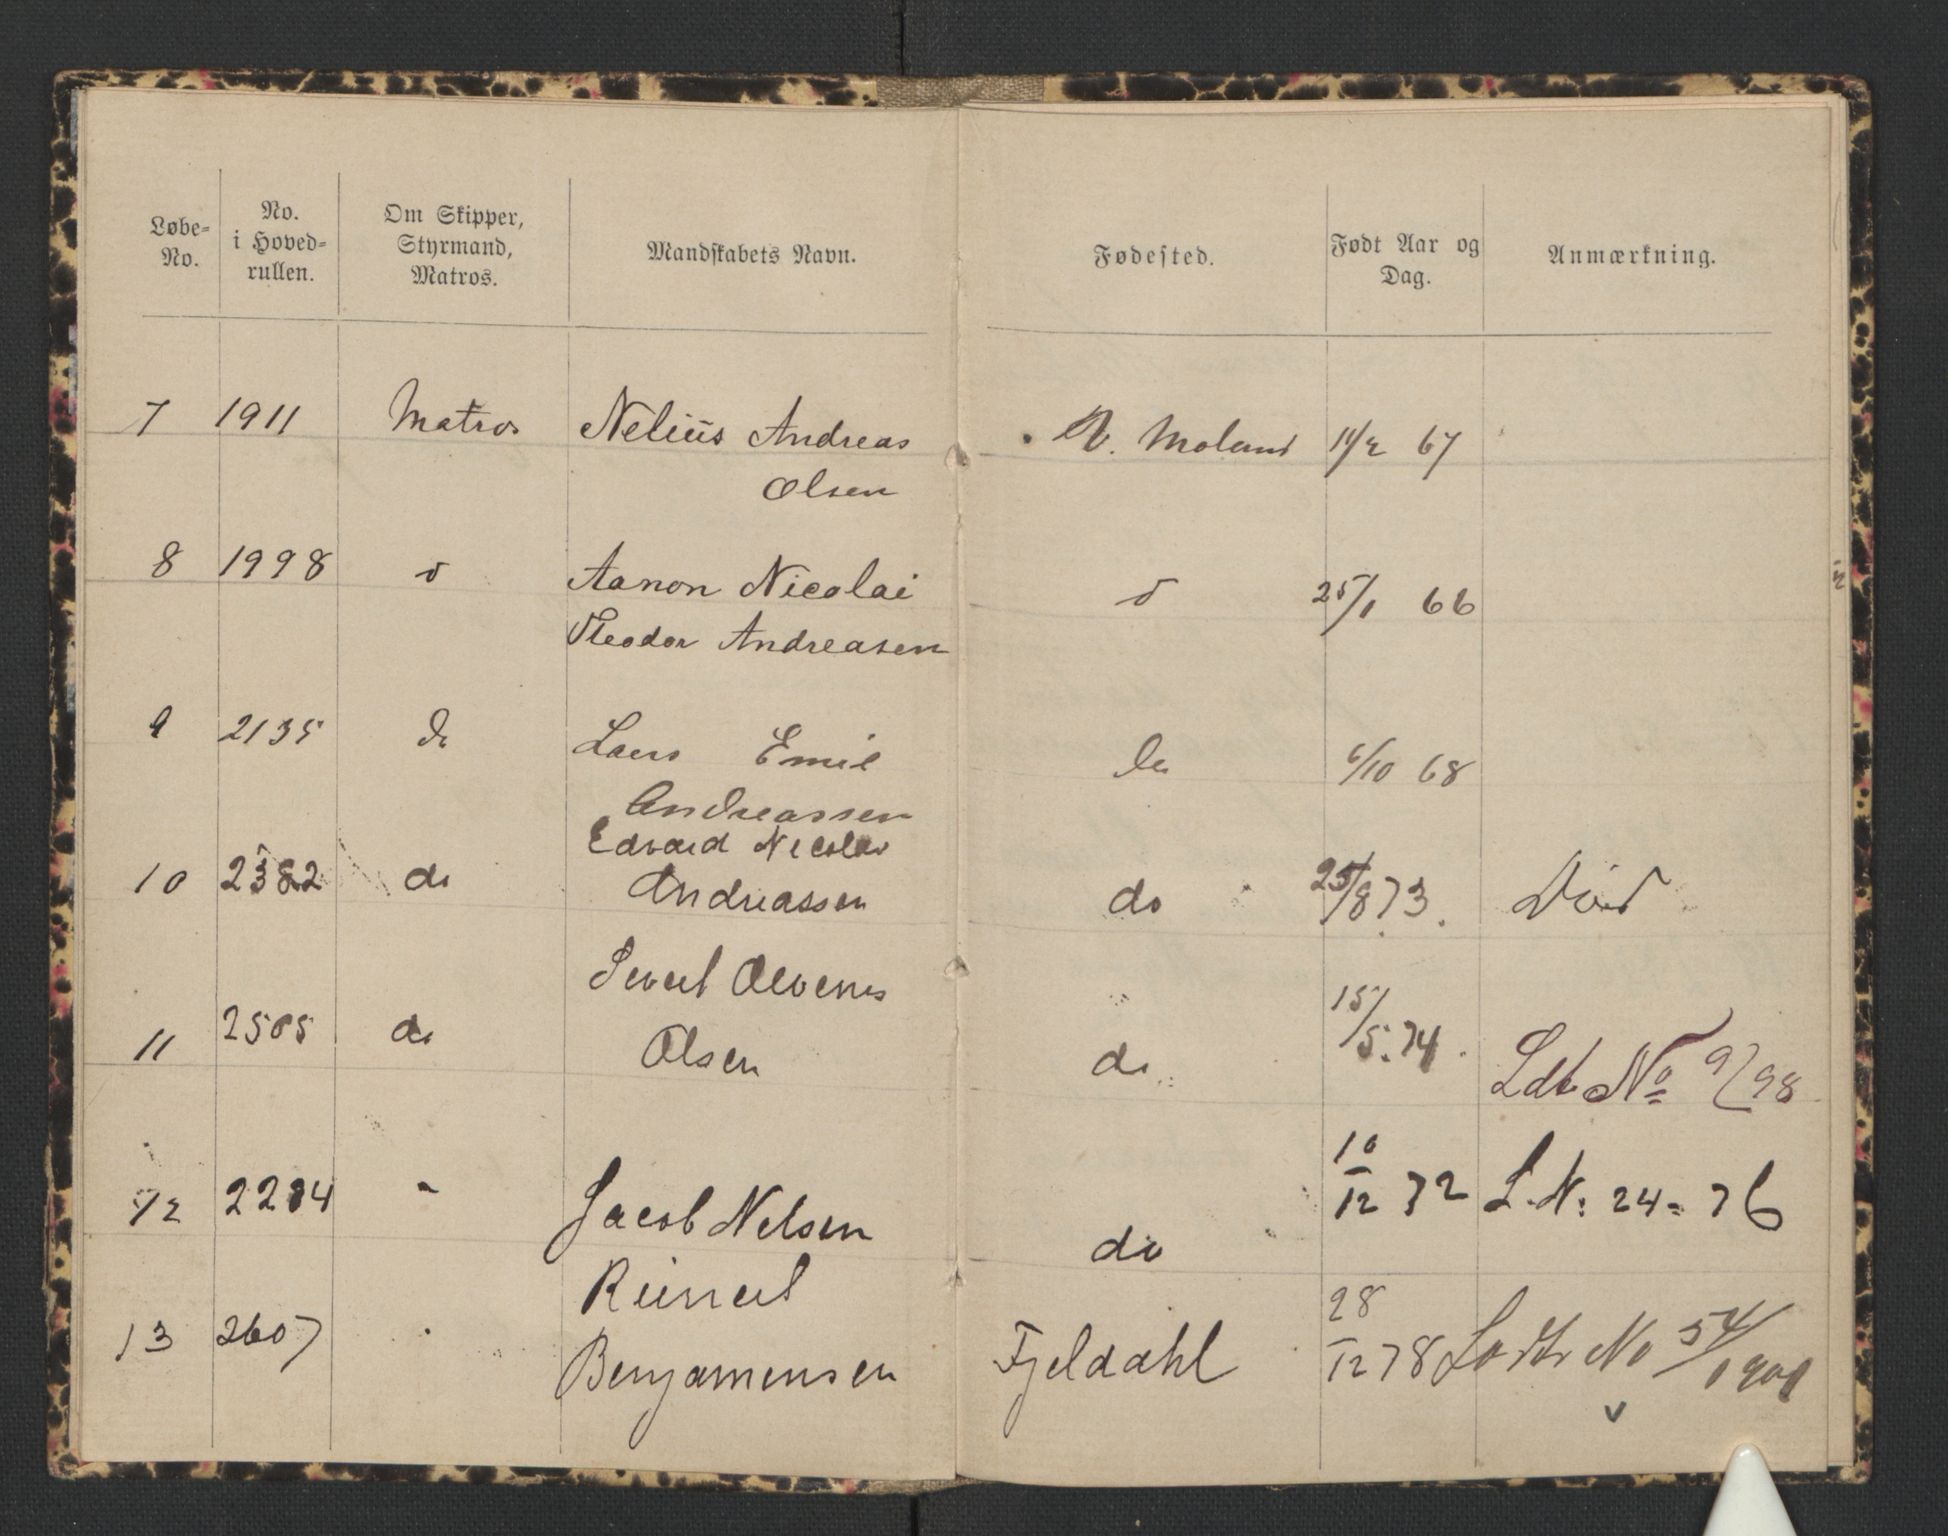 Løbe-
No.
No.
i Hoved-
rullen.
Om Skipper,
Styrmand,
Matros.
Mandskabets Navn.
Fødested.
Født Aar og
Dag.
Anmærkning.
7 1911 Matros Nelius Andreas
Olsen
Ø. Moland 11/2 67
8 1998 d Aanon Nicolai
Theodor Andreasen
d 25/1 66
9 2135 do Lars Emil
Andreassen
do 6/10 68
10 2382 do Edvard Nicolai
Andreassen
do 25/8 73. Död
11 2505 do Severt Olsen
do 15/5.74. Ldt No 9/98
12 2284 " Jacob Nelsen
do 10/12 72 L. N: 24= 76
13 2607 Reinert
Benjamensen
Fjeldahl 28/12 78 Lodts No 54/1900
v